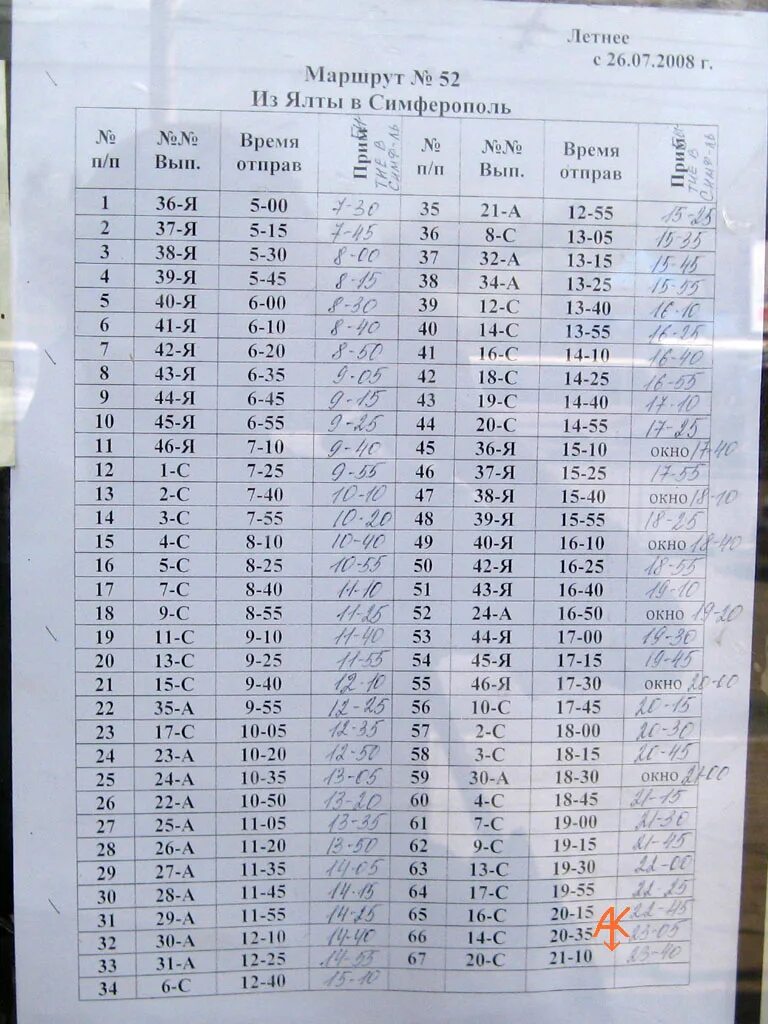 Летнее
с 26.07.2008 г.
Маршрут № 52
Из Ялты в Симферополь
№ п/п №№ Вып. Время отправ Прим № п/п №№ Вып. Время отправ Прим
1 36-Я 5-00 7-30 35 21-А 12-55 15-25
2 37-Я 5-15 7-45 36 8-С 13-05 15-35
3 38-Я 5-30 8-00 37 32-А 13-15 15-45
4 39-Я 5-45 8-15 38 34-А 13-25 15-55
5 40-Я 6-00 8-30 39 12-С 13-40 16-10
6 41-Я 6-10 8-40 40 14-С 13-55 16-25
7 42-Я 6-20 8-50 41 16-С 14-10 16-40
8 43-Я 6-35 9-05 42 18-С 14-25 16-55
9 44-Я 6-45 9-15 43 19-С 14-40 17-10
10 45-Я 6-55 9-25 44 20-С 14-55 17-25
11 46-Я 7-10 9-40 45 36-Я 15-10 окно 17-40
12 1-С 7-25 9-55 46 37-Я 15-25 17-55
13 2-С 7-40 10-10 47 38-Я 15-40 окно 18-10
14 3-С 7-55 10-20 48 39-Я 15-55 18-25
15 4-С 8-10 10-40 49 40-Я 16-10 окно 18-40
16 5-С 8-25 10-55 50 42-Я 16-25 18-55
17 7-С 8-40 11-10 51 43-Я 16-40 19-10
18 9-С 8-55 11-25 52 24-А 16-50 окно 19-20
19 11-С 9-10 11-40 53 44-Я 17-00 19-30
20 13-С 9-25 11-55 54 45-Я 17-15 19-45
21 15-С 9-40 12-10 55 46-Я 17-30 окно 20-00
22 35-А 9-55 12-25 56 10-С 17-45 20-15
23 17-С 10-05 12-35 57 2-С 18-00 20-30
24 23-А 10-20 12-50 58 3-С 18-15 20-45
25 24-А 10-35 13-05 59 30-А 18-30 окно 21-00
26 22-А 10-50 13-20 60 4-С 18-45 21-15
27 25-А 11-05 13-35 61 7-С 19-00 21-30
28 26-А 11-20 13-50 62 9-С 19-15 21-45
29 27-А 11-35 14-05 63 13-С 19-30 22-00
30 28-А 11-45 14-15 64 17-С 19-55 22-25
31 29-А 11-55 14-25 65 16-С 20-15 22-45
32 30-А 12-10 14-40 66 14-С 20-35 23-05
33 31-А 12-25 14-55 67 20-С 21-10 23-40
34 6-С 12-40 15-10
АК